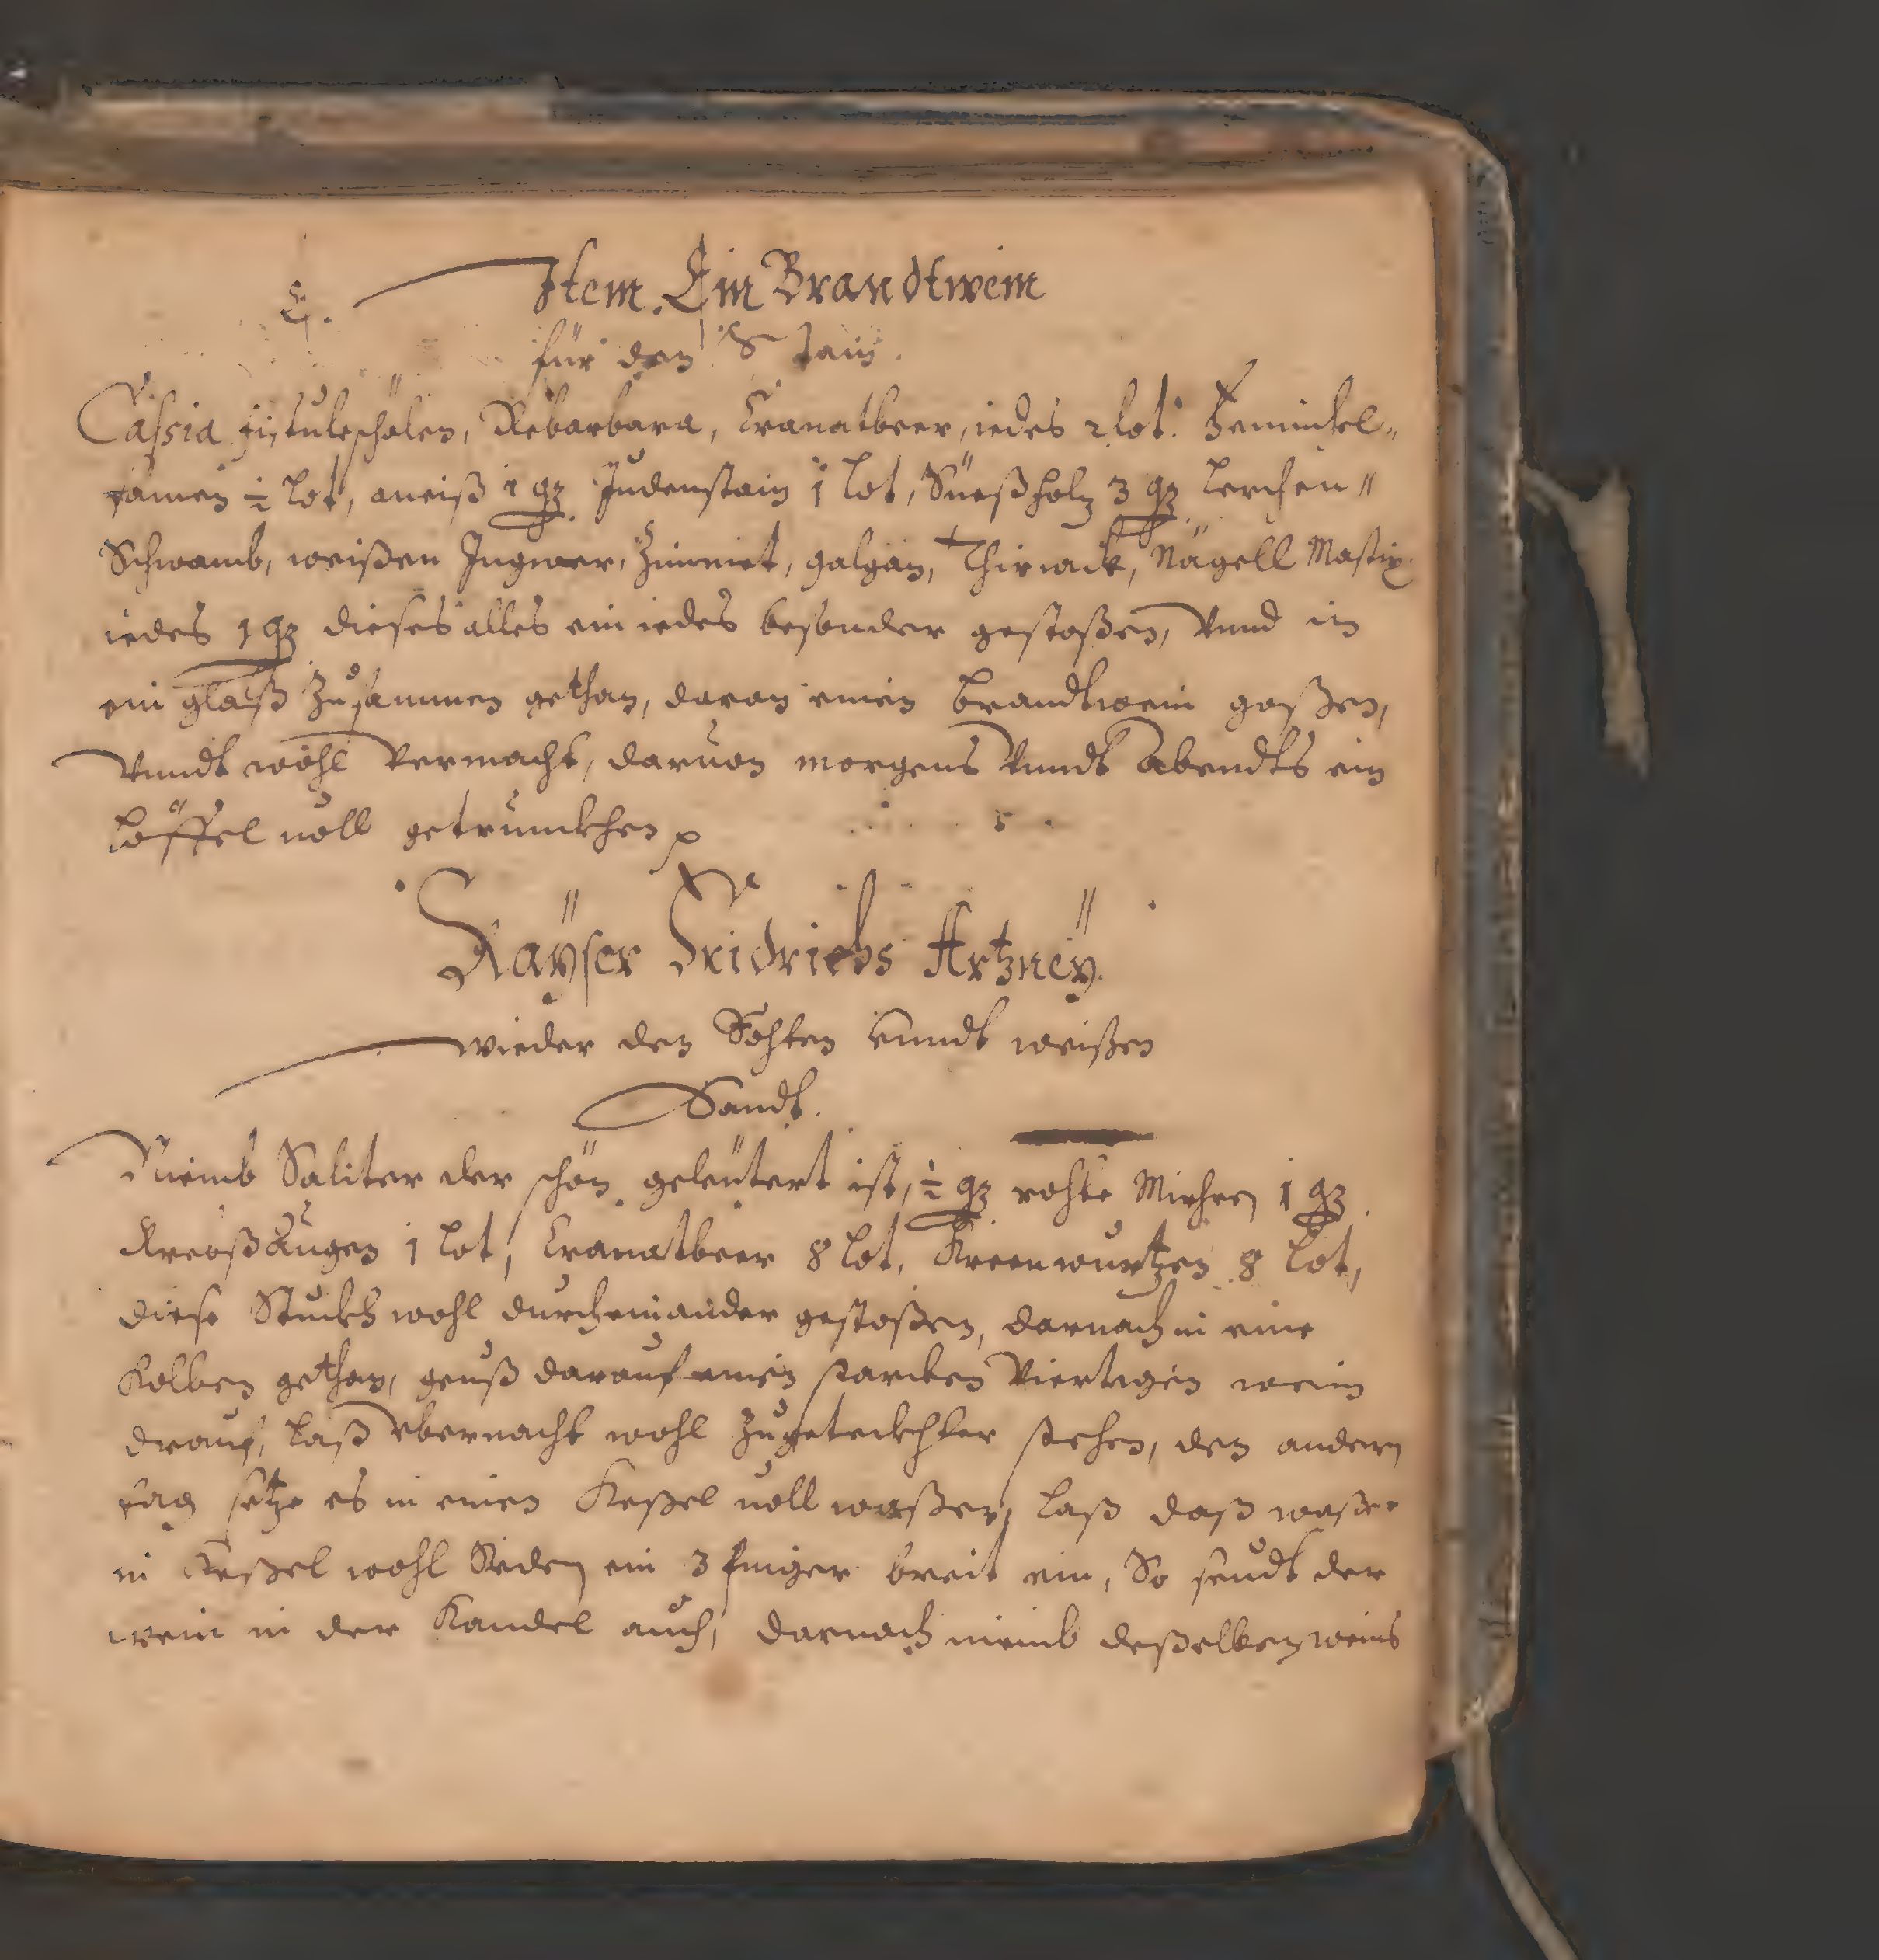 Item. Ein Brandtwein
für den Stain.
Cassia fistuleschölen, Rebarbara, Cranatbeer, iedes 2 lot. Fennickel„
samen ½ lot, aneiß 1 qz Judenstain 1 lot, Süeßholz 3 qz Lerchen„
Schwamb, weißen Ingwer, Zimmet, galgan, Thiriack, Nägell Mastix
iedes 1 qz dieses alles ein iedes besonder gestoßen, Vnnd in
ein glaß Zusammen gethan, daran einen brandtwein goßen,
Vnndt wohl Vermacht, daruon morgens Vnndt Abendts ein
Löffel uoll getrunckhen
Kaÿser Fridrichs Artzneÿ.
wieder den rohten Vnndt weißen
Sandt.
Niemb Saliter der schön geleütert ist, ½ qz rohte Mirhen 1 qz.
KreoßAugen 1 lot, Cranatbeer 8 lot, Kreenwurtzen 8 lot,
diese Stuckh wohl durcheinander gestoßen, darnach in eine
Kolben gethan, geuß darauf einen starcken Viertigen wein
drauf, laß Vbernacht wohl Zugeteckhter stehen, den andern
tag setze es in einen Keßel uoll waßer, laß daß waßer
in Keßel wohl Sieden ein 3 finger breit ein, So seudt der
wein in der Kandel auch, darnach niemb deßelben weins